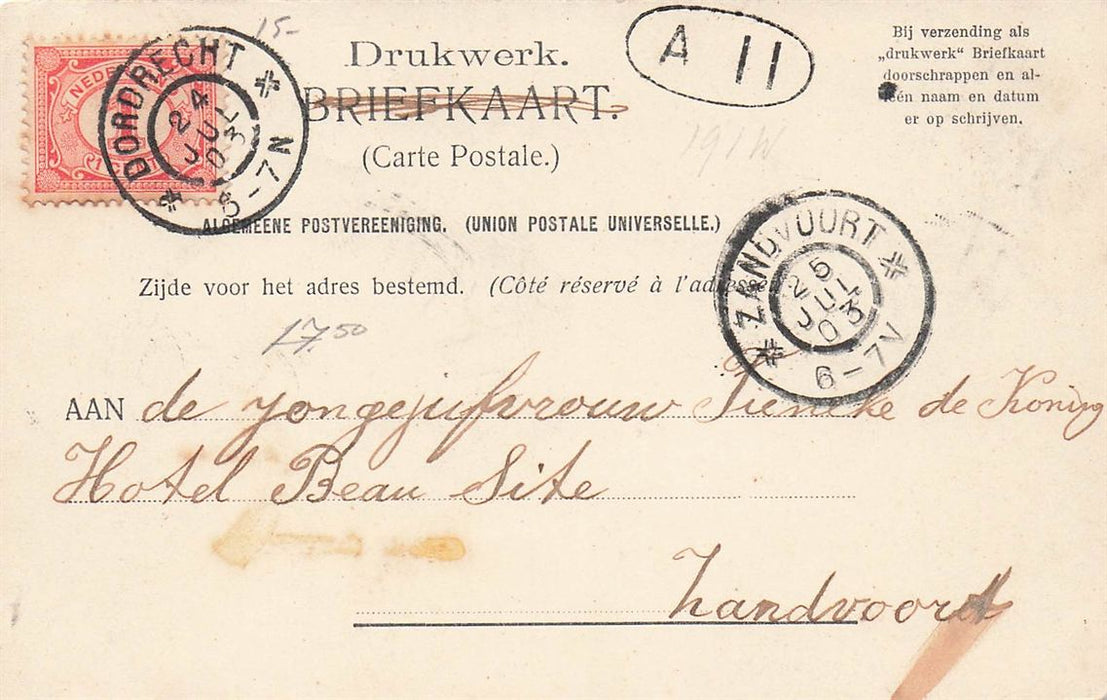 15-
Drukwerk.
BRIEFKAART.
(Carte Postale.)
A 11
Bij verzending als
„drukwerk“ Briefkaart
doorschrappen en al-
leén naam en datum
er op schrijven.
NEDER
1 CENT
DORDRECHT
24
JUL
03
6-7N
ALGEMEENE POSTVEREENIGING. (UNION POSTALE UNIVERSELLE.)
Zijde voor het adres bestemd. (Côté réservé à l'adresse
ZANDVOORT
25
JUL
03
6-7V
17.50
AAN de jongejufvrouw Tieneke de Koning
Hotel Beau Site
Zandvoort